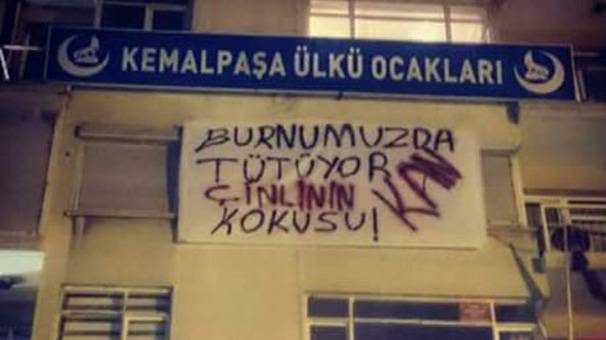 KEMALPAŞA ÜLKÜ OCAKLARI
BURNUMUZDA
TÜTÜYOR
ÇİNLİNİN KAN
KOKUSU!